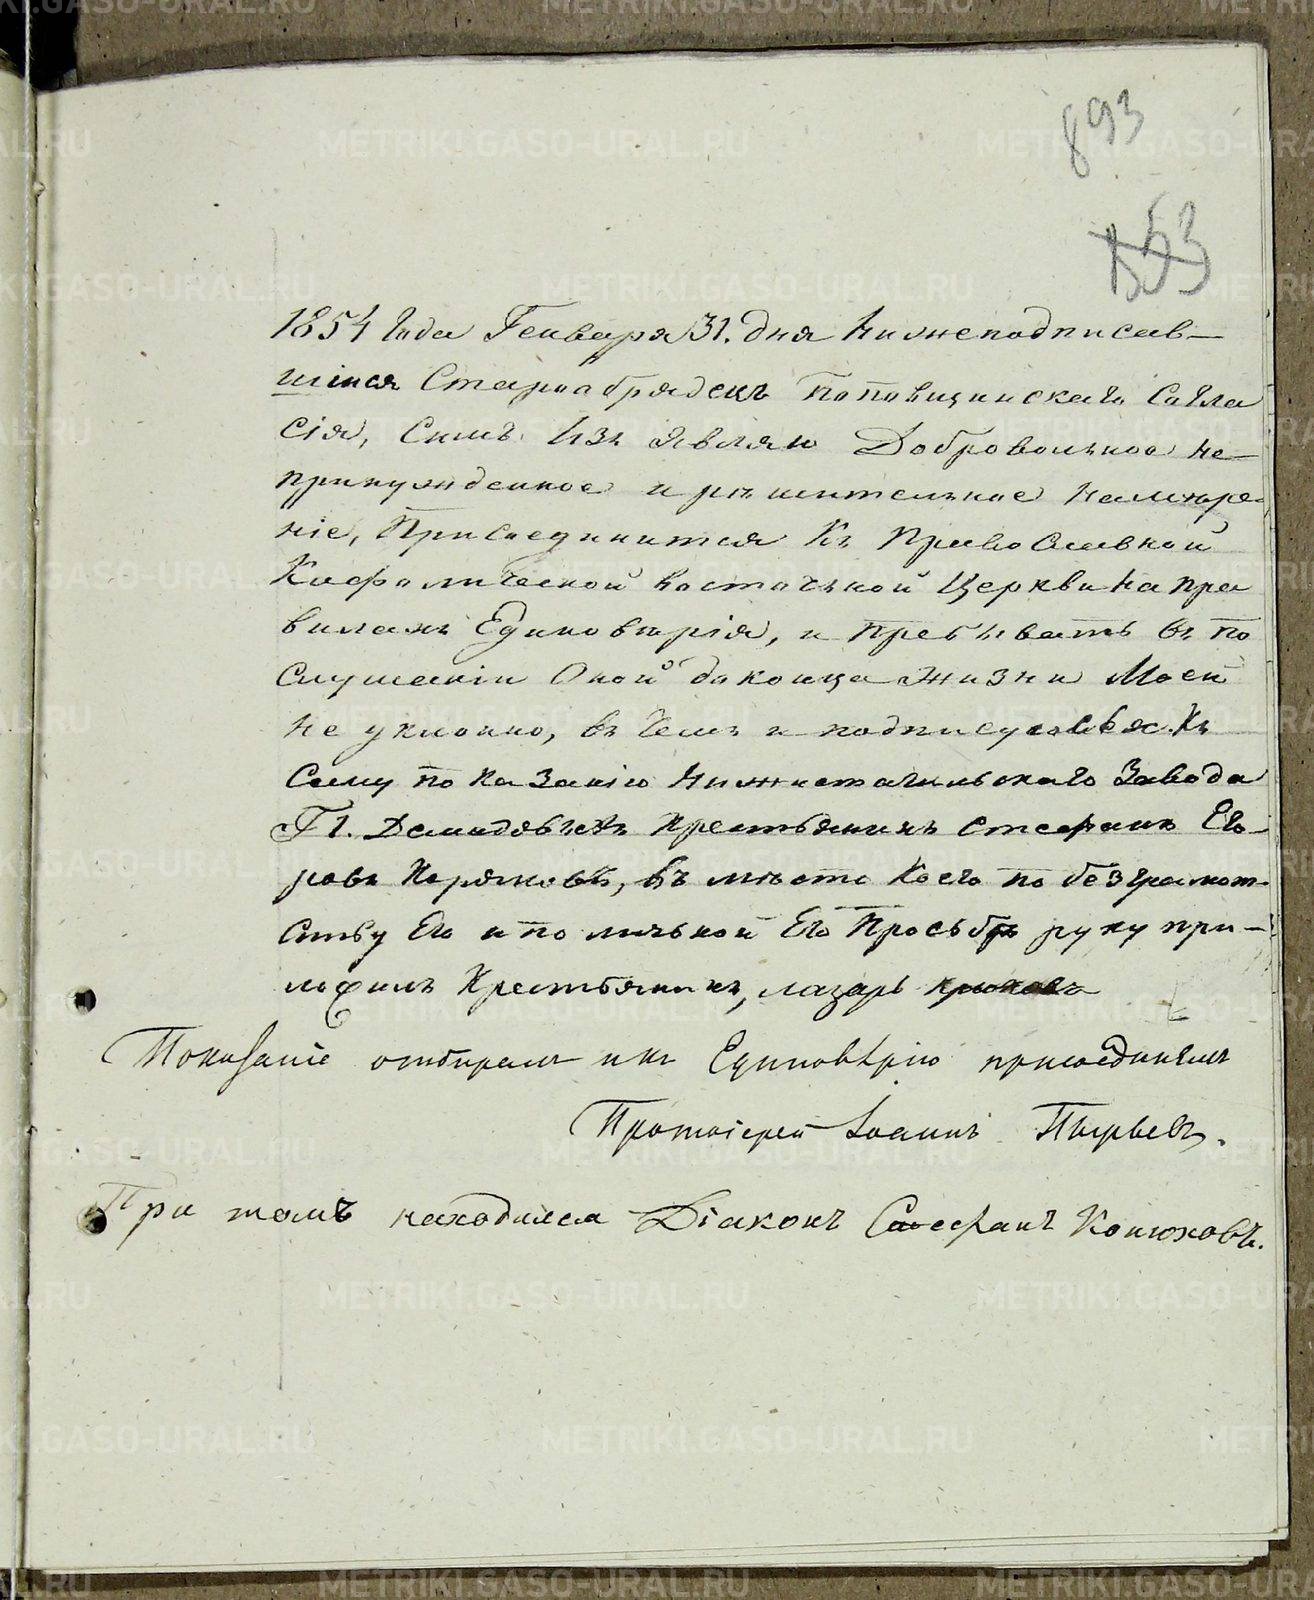 893
853
1854 Года Генваря 31. дня Нижеподписав-
шійся Старообрядецъ Поповщинскаго Согла
сія, Симъ Изъ являю Добровольное не-
принужденное и решительное намѣре
ніе, Присоединится Къ Православной
Кафолической восточной Церкви на пра
вилахъ Единовѣрія, и пребывать въ по
слушаніи Оной до конца жизни Моей
не уклонно, въ чемъ и подписуюсь Къ
Сему показанію Нижнетагильскаго Завода
Гг. Демидовыхъ Крестьянинъ Стефанъ Его-
ровъ, въ место Коего по безграмот-
ству Его и по личьной Его Просьбѣ руку при-
ложилъ Крестьянинъ, лазарь крюковъ
Показаніе отбиралъ и къ Единовѣрію присоединялъ
Протоіерей Іоаннъ Пырьевъ.
При томъ находился Діаконъ Стефанъ Конюховъ.
METRIKI.GASO-URAL.RU